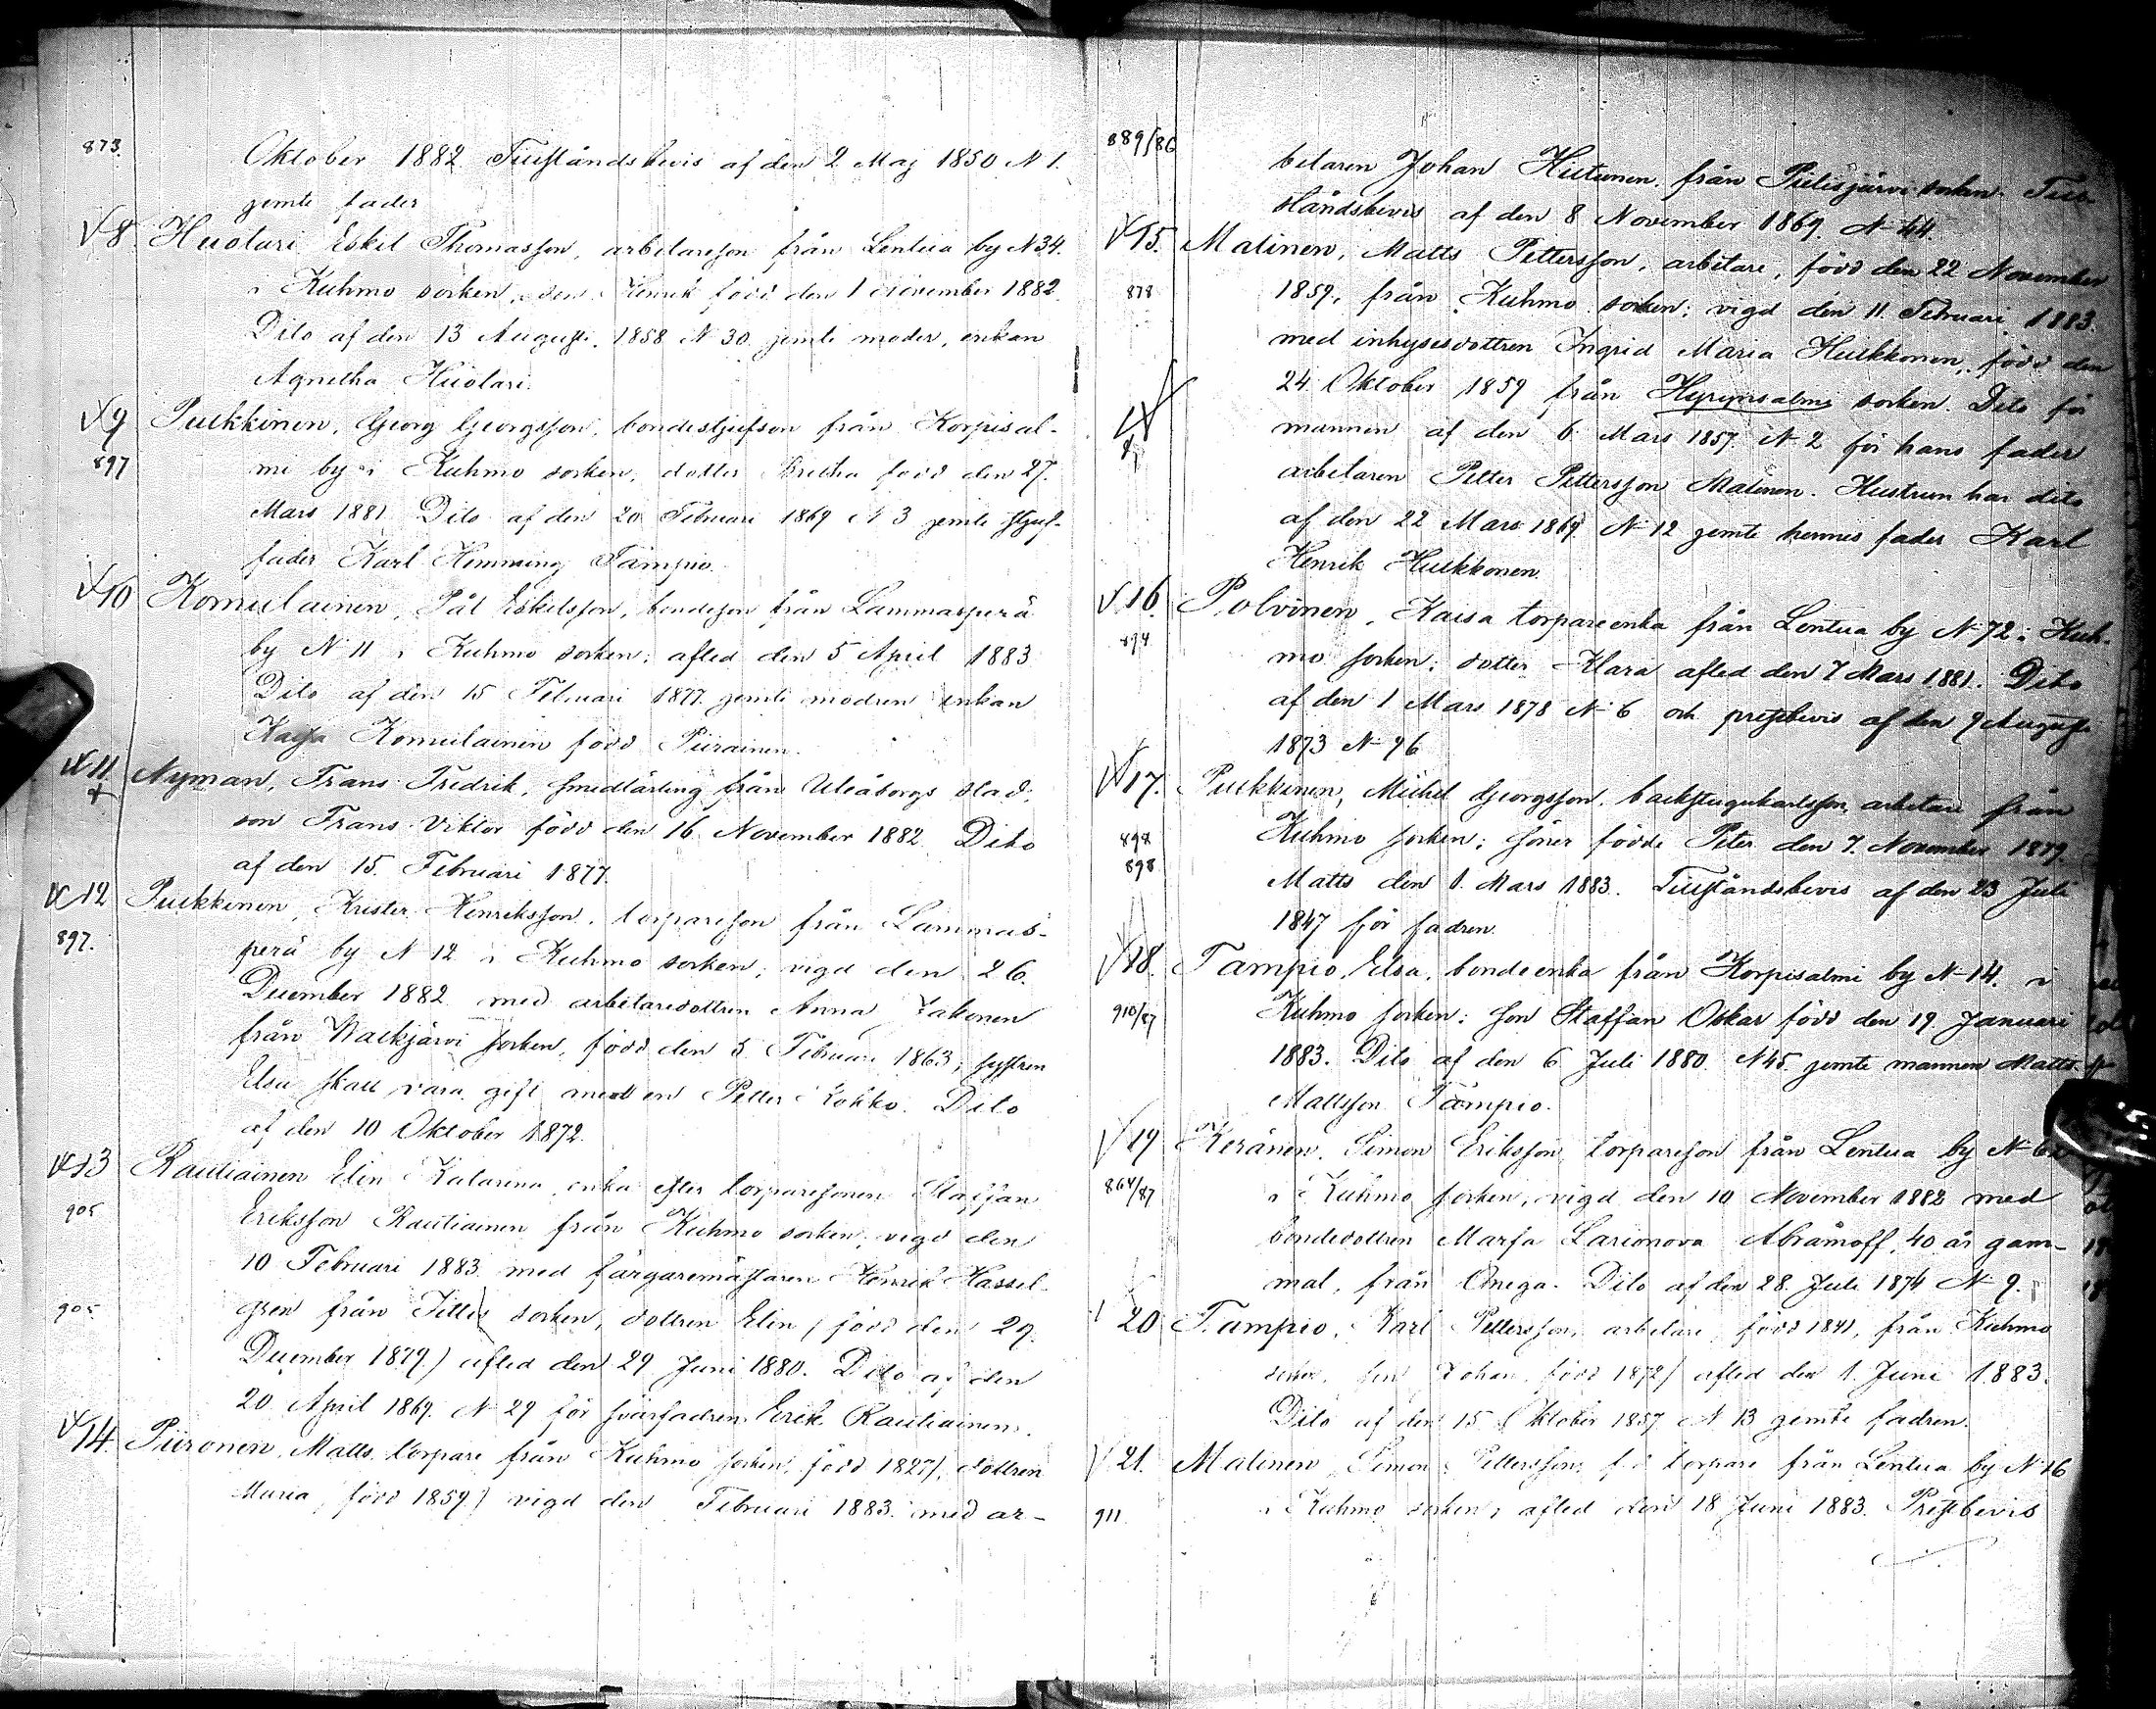 873.
Oktober 1882 Tillståndsbevis af den 2 Maj 1850 N 1.
jemte fader
8 Huotari Eskel Thomasson, arbetareson från Lentua by N 34.
i Kuhmo socken, son Henrik född den 1 November 1882.
Dito af den 13 Augusti 1858 N 30 jemte moder, enkan
Agnetha Huotari.
9 Pulkkinen, Georg Georgsson, bondestjufson från Korpisal-
897
mi by i Kuhmo socken, dotter Bretha född den 27.
Mars 1881 Dito af den 20 Februari 1869 N 3 jemte stjuf-
fader Karl Hemming Tampio.
10 Komulainen, Pål Eskelsson, bondeson från Lammasperä
by N 11 i Kuhmo socken; afled den 5 April 1883
Dito af den 15 Februari 1877 jemte modren enkan
Kajsa Komulainen född Piirainen.
11 Nyman, Frans Fredrik, smedlärling från Uleåborgs stad;
son Frans Viktor född den 16 November 1882. Dito
af den 15. Februari 1877.
12 Pulkkinen, Krister Henriksson, torpareson från Lammas-
897.
perä by N 12 i Kuhmo socken, vigd den 26.
December 1882 med arbetaredottren Anna Jakonen
från Walkjärvi socken, född den 5 Februari 1863; systren
Elsa skall vara gift med en Petter Kokko. Dito
af den 10 Oktober 1872.
13 Rautiainen Elin Katarina, enka efter torparesonen Staffan
905
Eriksson Rautiainen från Kuhmo socken, vigd den
10 Februari 1883 med färgaremästaren Henrik Hassel-
905
gren från socken, dottren Elin (född den 29.
December 1879) afled den 29 Juni 1880. Dito af den
20 April 1869. N 29 för svärfadren Erik Rautiainen.
14. Piironen, Matts torpare från Kuhmo socken, född 1827), dottren
Maria, född 1859) vigd den Februari 1883 med ar-
889/86
betaren Johan Hiltunen från Pielisjärvi socken. Till-
ståndsbevis af den 8 November 1869. N 44.
15. Malinen, Matts Pettersson, arbetare, född den 22 November
878
1859, från Kuhmo socken; vigd den 11 Februari 1883.
med inhysesdottren Ingrid Maria Hulkkonen, född den
24 Oktober 1859 från Hyrynsalmi socken. Dito för
mannen af den 6 Mars 1857. N 2 för hans fader
arbetaren Petter Pettersson Malinen. Hustrun har dito
af den 22 Mars 1869 N 12 jemte hennes fader Karl
Henrik Hulkkonen.
16. Polvinen, Kaisa torpareenka från Lentua by N 72 i Kuh-
894
mo socken; dotter Klara afled den 7 Mars 1881. Dito
af den 1 Mars 1878 N 6 och prestbevis af den 9 Augusti
1873 N 96
17. Pulkkinen, Michel Georgsson, backstugukarlsson, arbetare från
898
Kuhmo socken; söner födde Peter den 7. November 1879.
898
Matts den 1. Mars 1883. Tillståndsbevis af den 23 Juli
1847 för fadren.
18. Tampio, Elsa, bondeenka från Korpisalmi by N 14. i
910/87
Kuhmo socken; son Staffan Oskar född den 19 Januari
1883. Dito af den 6 Juli 1880. N 45. jemte mannen Matts
Mattsson Tampio.
19 Keränen, Simon Eriksson, torpareson från Lentua by N
864/87
i Kuhmo socken, vigd den 10 November 1882 med
bondedottren Marfa Larionova Abramoff, 40 år gam-
mal, från Onega. Dito af den 28. Juli 1874 N 9.
20 Tampio, Karl Pettersson, arbetare, född 1841, från Kuhmo
socken, son Johan född 1872) afled den 1. Juni 1883.
Dito af den 15 Oktober 1857 N 13 jemte fadren.
21. Malinen Simon Pettersson, f.d. torpare från Lentua by N 16
911
i Kuhmo socken; afled den 18 Juni 1883. Prestbevis